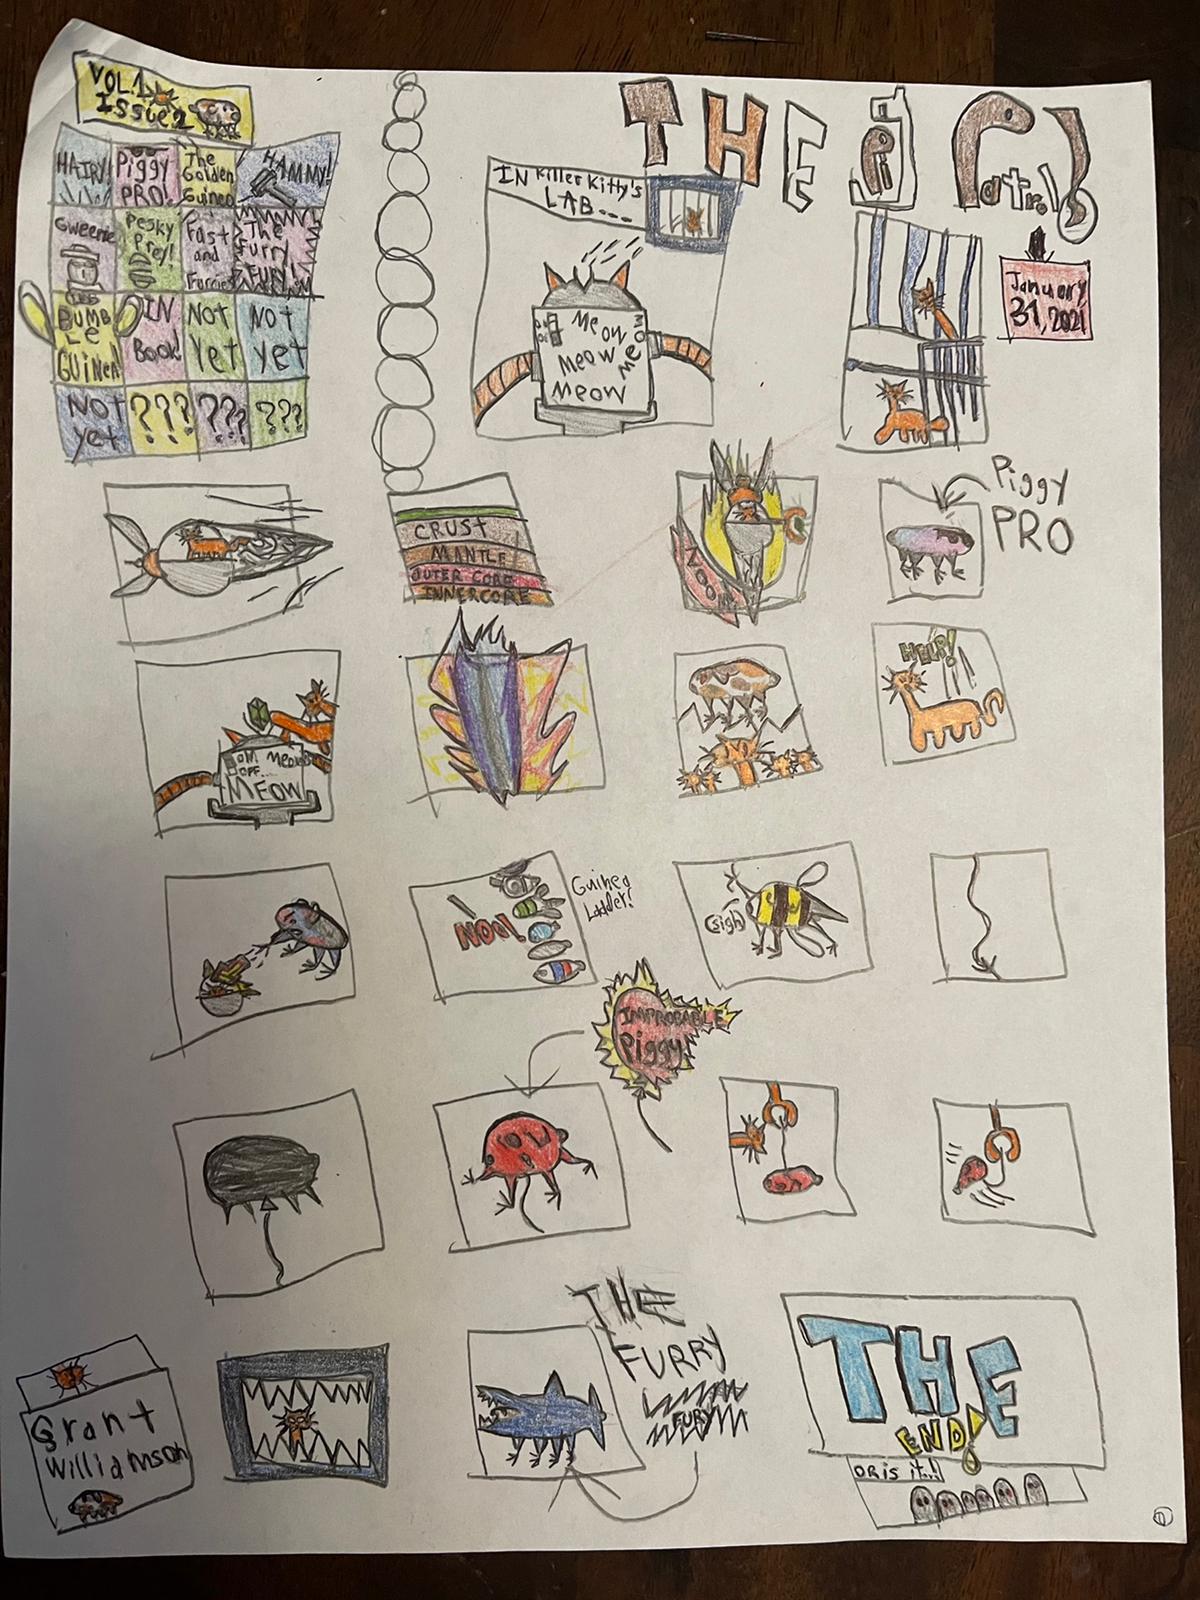 VOL.1
Issue 2
THE Pi Patrol!
January
31, 2021
HAIRY!
Piggy
PRO!
The
Golden
Guinea
HAMMY!
Gweenie
Pesky
Prey!
Fast
and
Furriest
The
Furry
FURY!
BUMB
Le
GUINEA!
IN
Book!
NOT
Yet
NOT
yet
NOT
yet
???
???
???
IN Killer Kitty's
LAB...
Meow
Meow
Meow
Meo
CRUST
MANTLE
OUTER CORE
INNERCORE
ZOOM!
Piggy
PRO
MEOW
HELP!
NOO!
Guinea
Ladder!
(sigh)
IMPROBABLE
Piggy!
Grant
Williamson
THE
FURRY
FURY
THE
END!
OR is it...!